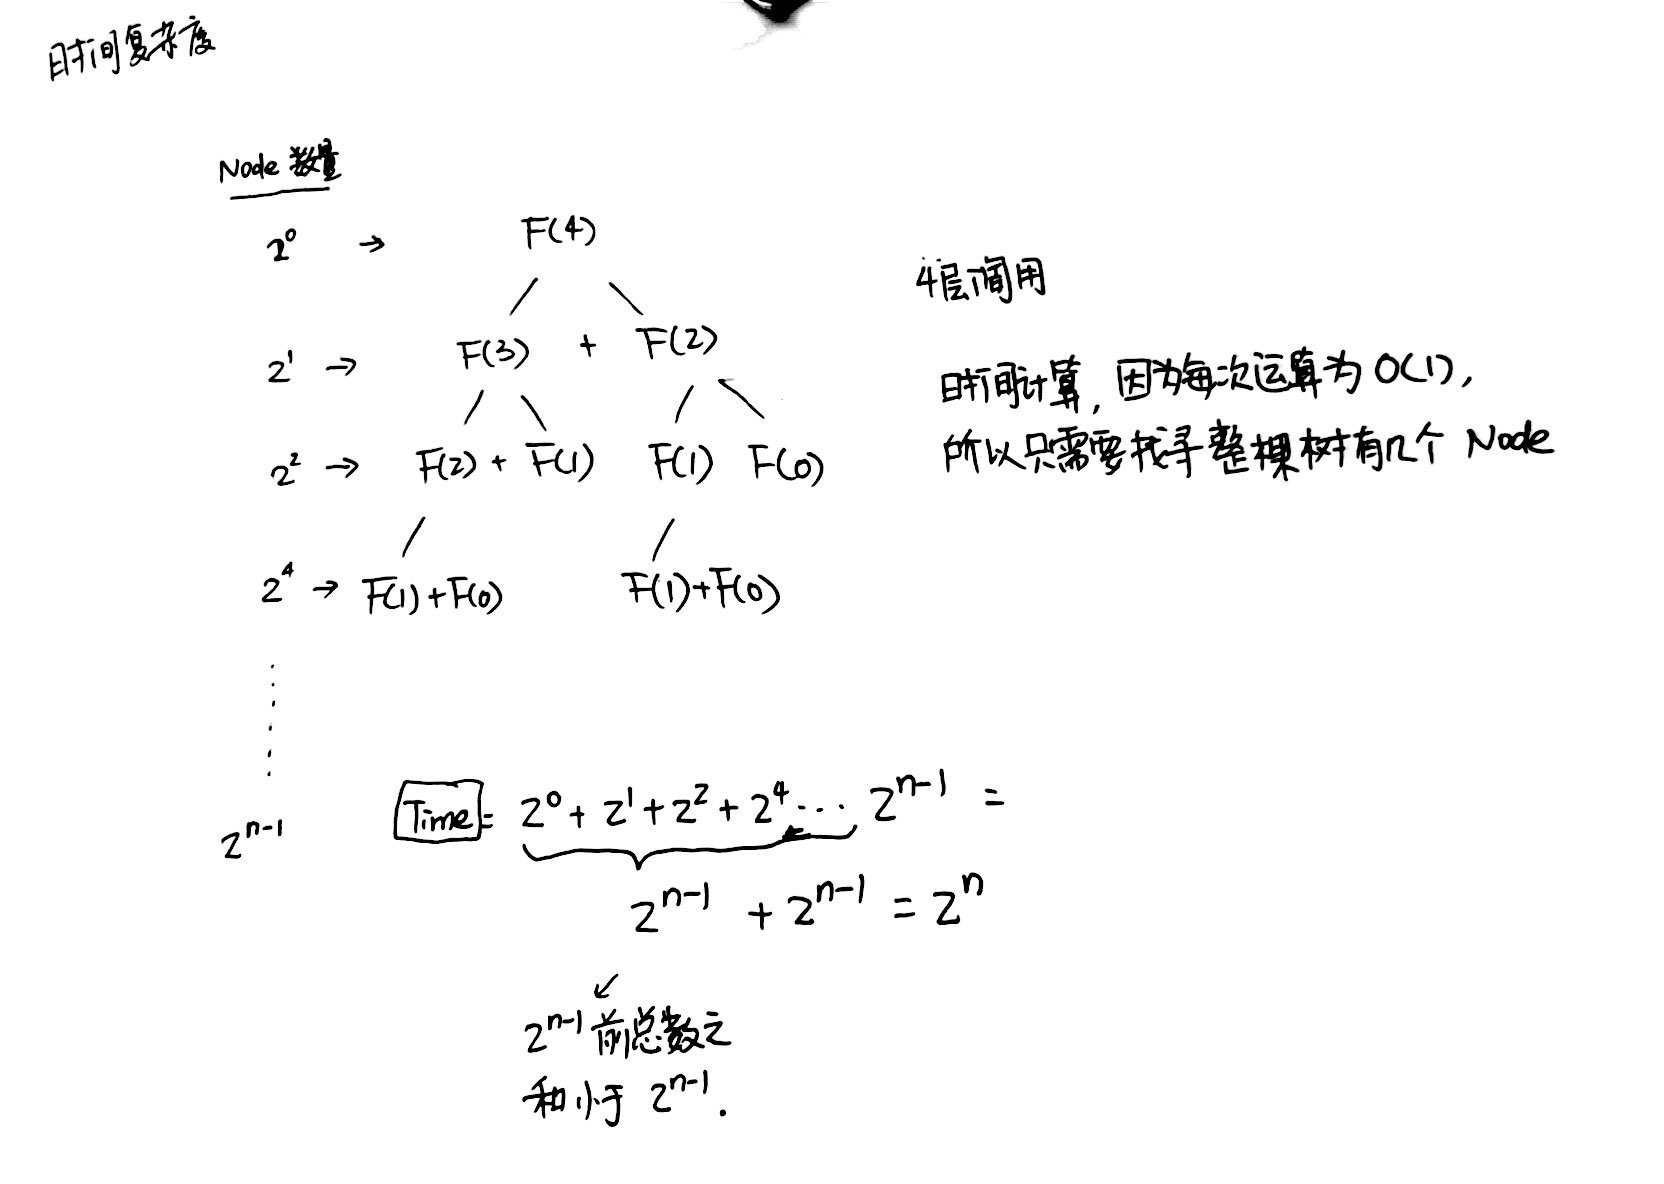 时间复杂度
Node 数量
2^0 → F(4)
4层调用
2^1 → F(3) + F(2)
时间计算, 因为每次运算为 O(1),
2^2 → F(2) + F(1) F(1) F(0)
所以只需要找寻整棵树有几个 Node
2^4 → F(1)+F(0) F(1)+F(0)
2^n-1
Time = 2^0 + 2^1 + 2^2 + 2^4 ... 2^n-1 =
2^n-1 + 2^n-1 = 2^n
2^n-1 前总数之
和小于 2^n-1.